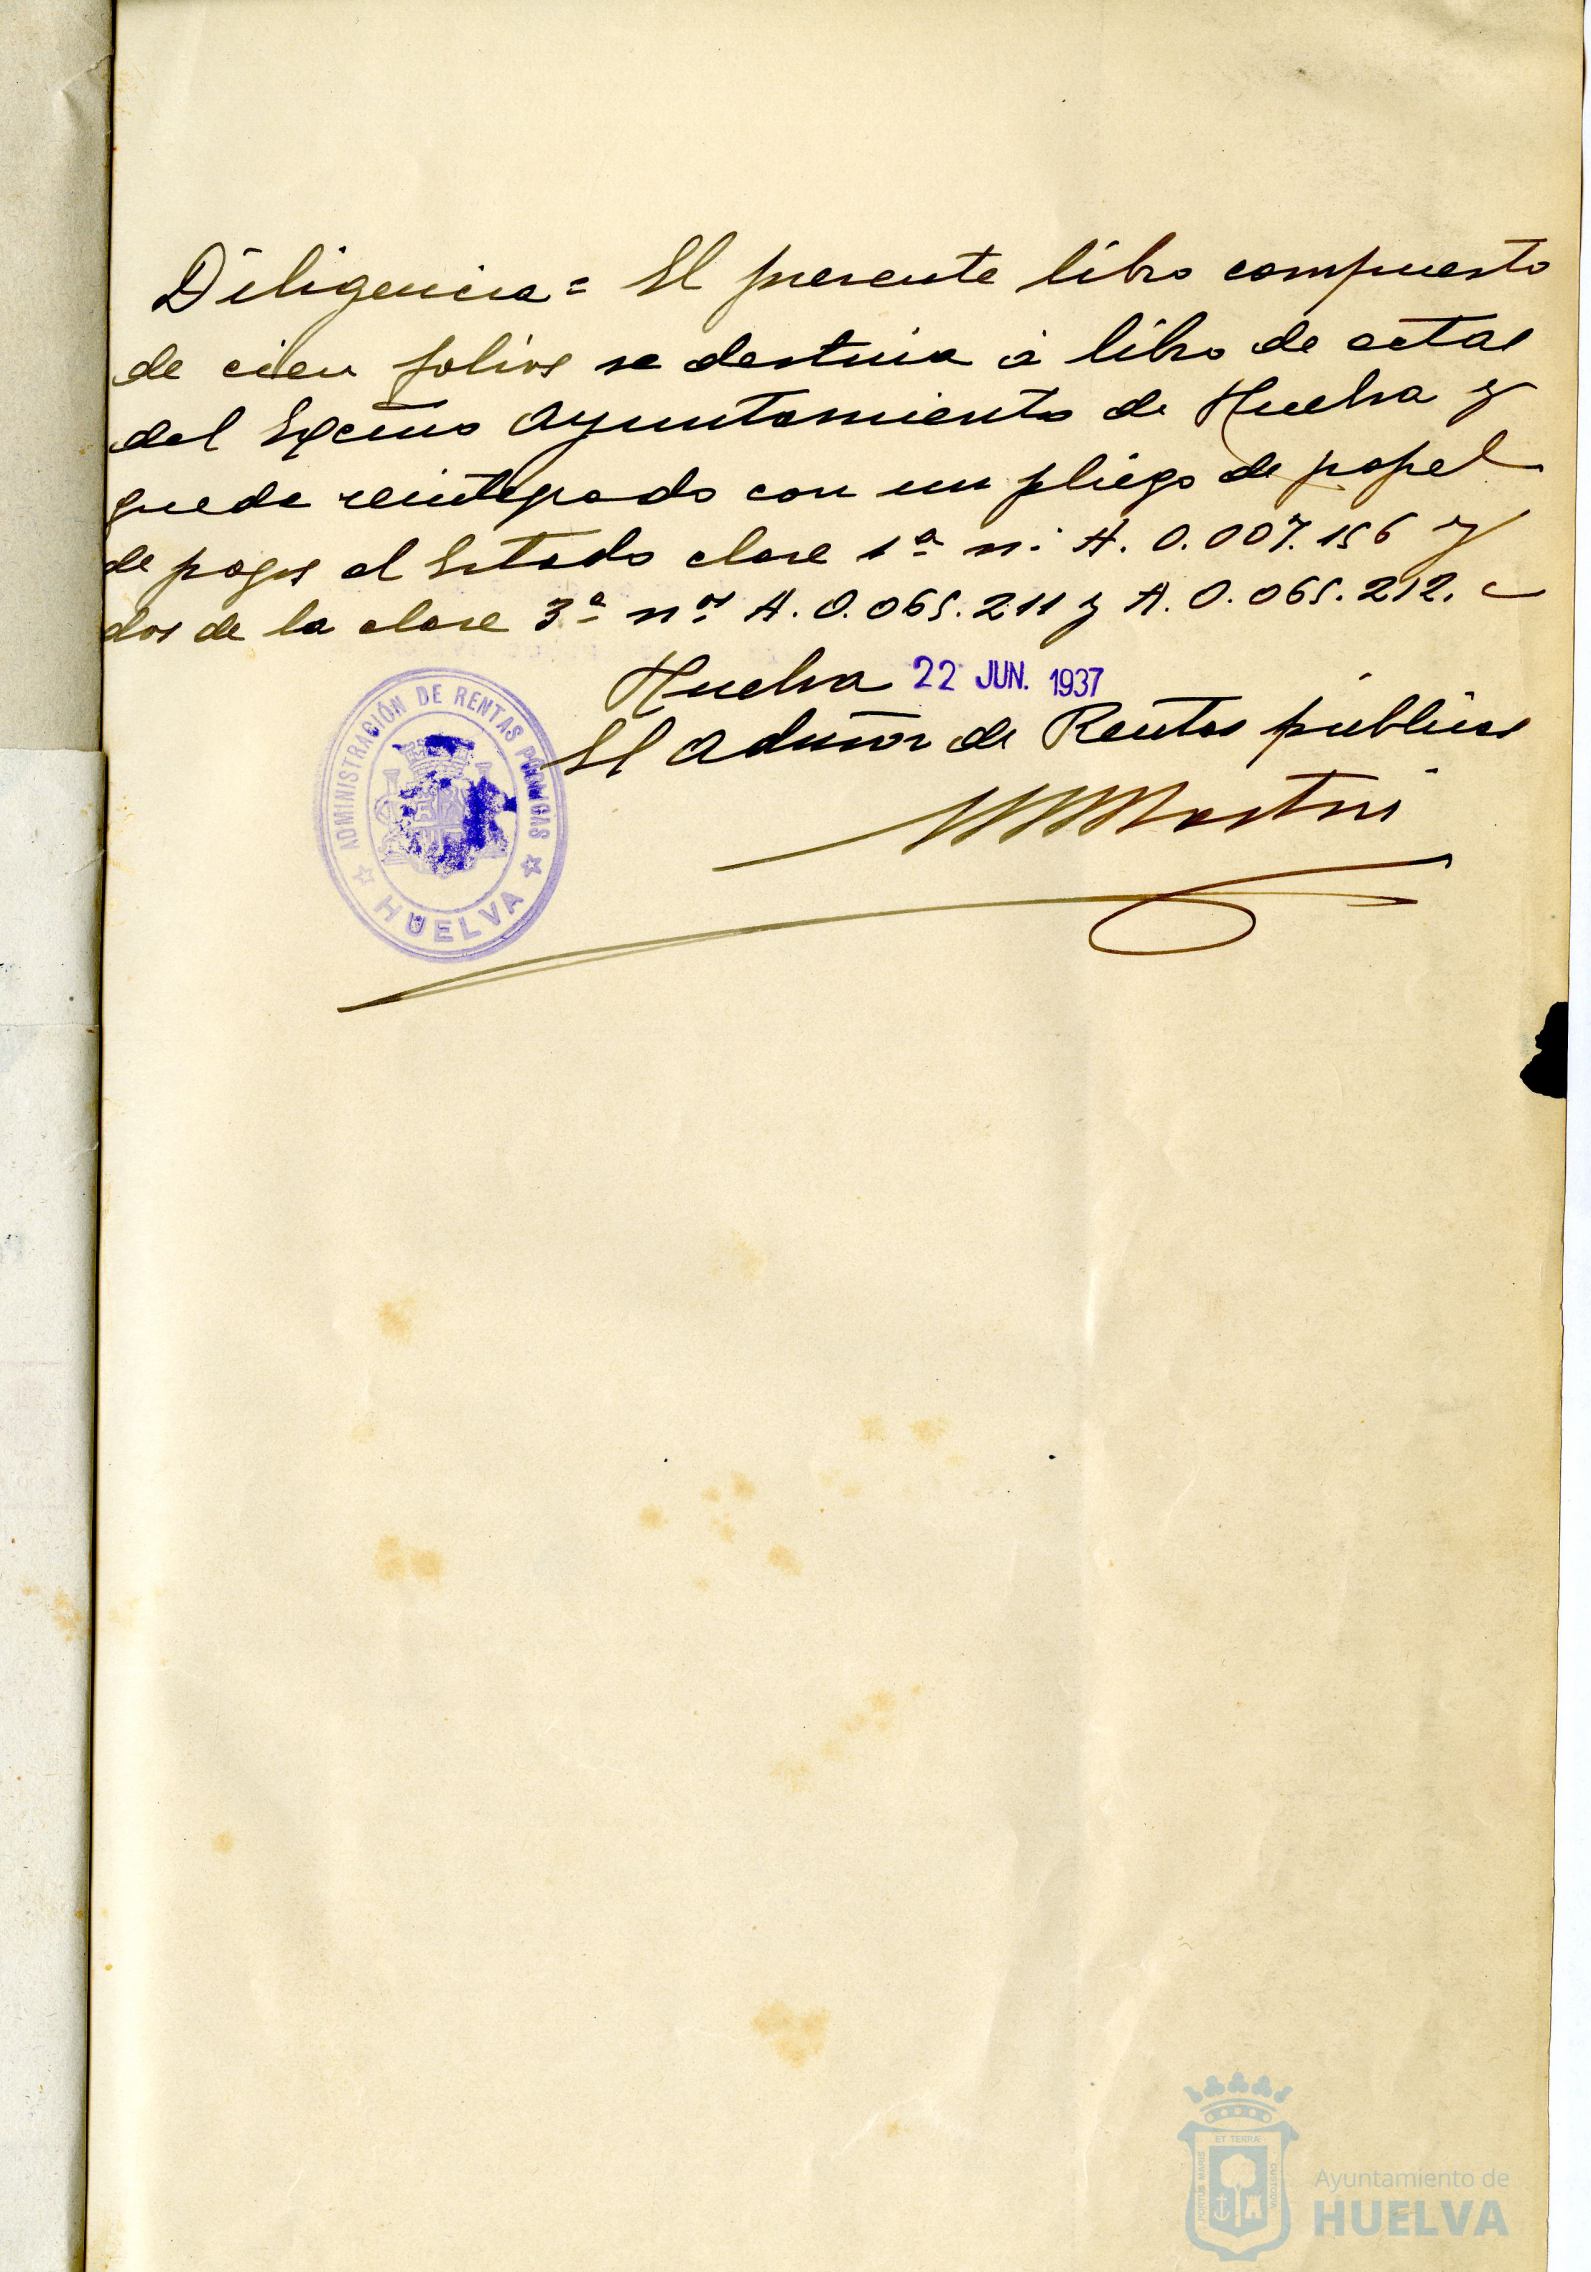 Diligencia = El presente libro compuesto
de cien folios se destina á libro de actas
del Excmo Ayuntamiento de Huelva y
queda reintegrado con un pliego de papel
de pagos al Estado clase 1ª nº A. 0.007.156 y
dos de la clase 3ª nos A. 0.065.211 y A. 0.065.212.
Huelva 22 JUN. 1937
El Admor de Rentas públicas
ADMINISTRACIÓN DE RENTAS PÚBLICAS
HUELVA
PORTUS MARIS ET TERRÆ CUSTODIA
Ayuntamiento de
HUELVA